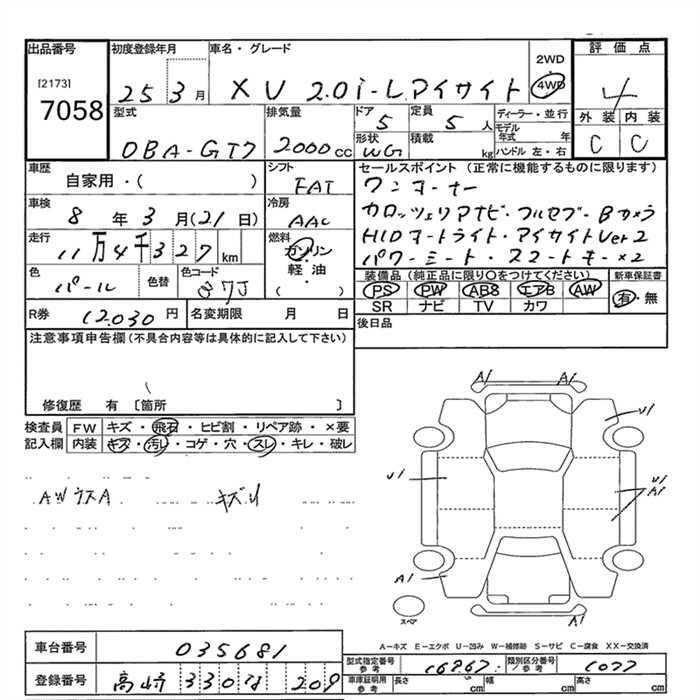 出品番号
[2173]
7058
初度登録年月
25 3月
車名・グレード
XV 2.0i-Lアイサイト
2WD
4WD
評価点
4
外装 内装
C C
型式
DBA-GT7
排気量
2000cc
ドア 5
定員 5人
形状 WG
積載 kg
ディーラー・並行
モデル年式 年
ハンドル 左・右
車歴
自家用・( )
シフト
FAT
車検
8年3月(21日)
冷房
AAC
走行
11万4千327km
燃料
ガソリン
軽・油
( )
色
パール
色替
色コード
37J
R券 12,030円
名変期限 月 日
セールスポイント(正常に機能するものに限ります)
ワンオーナー
カロッツェリアナビ・フルセグ・Bカメラ
HIDオートライト・アイサイトVer2
パワーシート・スマートキー×2
装備品(純正品に限り○をつけてください)
PS PW ABS エアB AW
SR ナビ TV カワ
新車保証書
有・無
後日品
注意事項申告欄(不具合内容等は具体的に記入して下さい)
修復歴 有 〔箇所 〕
検査員記入欄
FW キズ・飛石・ヒビ割・リペア跡・×要
内装 キズ・汚レ・コゲ・穴・スレ・キレ・破レ
AWウスA キズリ
A1 A1
U1
U1
U1
A1
A1
A1
スペア
A-キズ E-エクボ U-凹み W-補修跡 S-サビ C-腐食 XX-交換済
車台番号 035681
登録番号 高崎 330 な 209
型式指定番号 参考 16867
類別区分番号 参考 1077
車庫証明用 参考 長さ cm 幅 cm 高さ cm